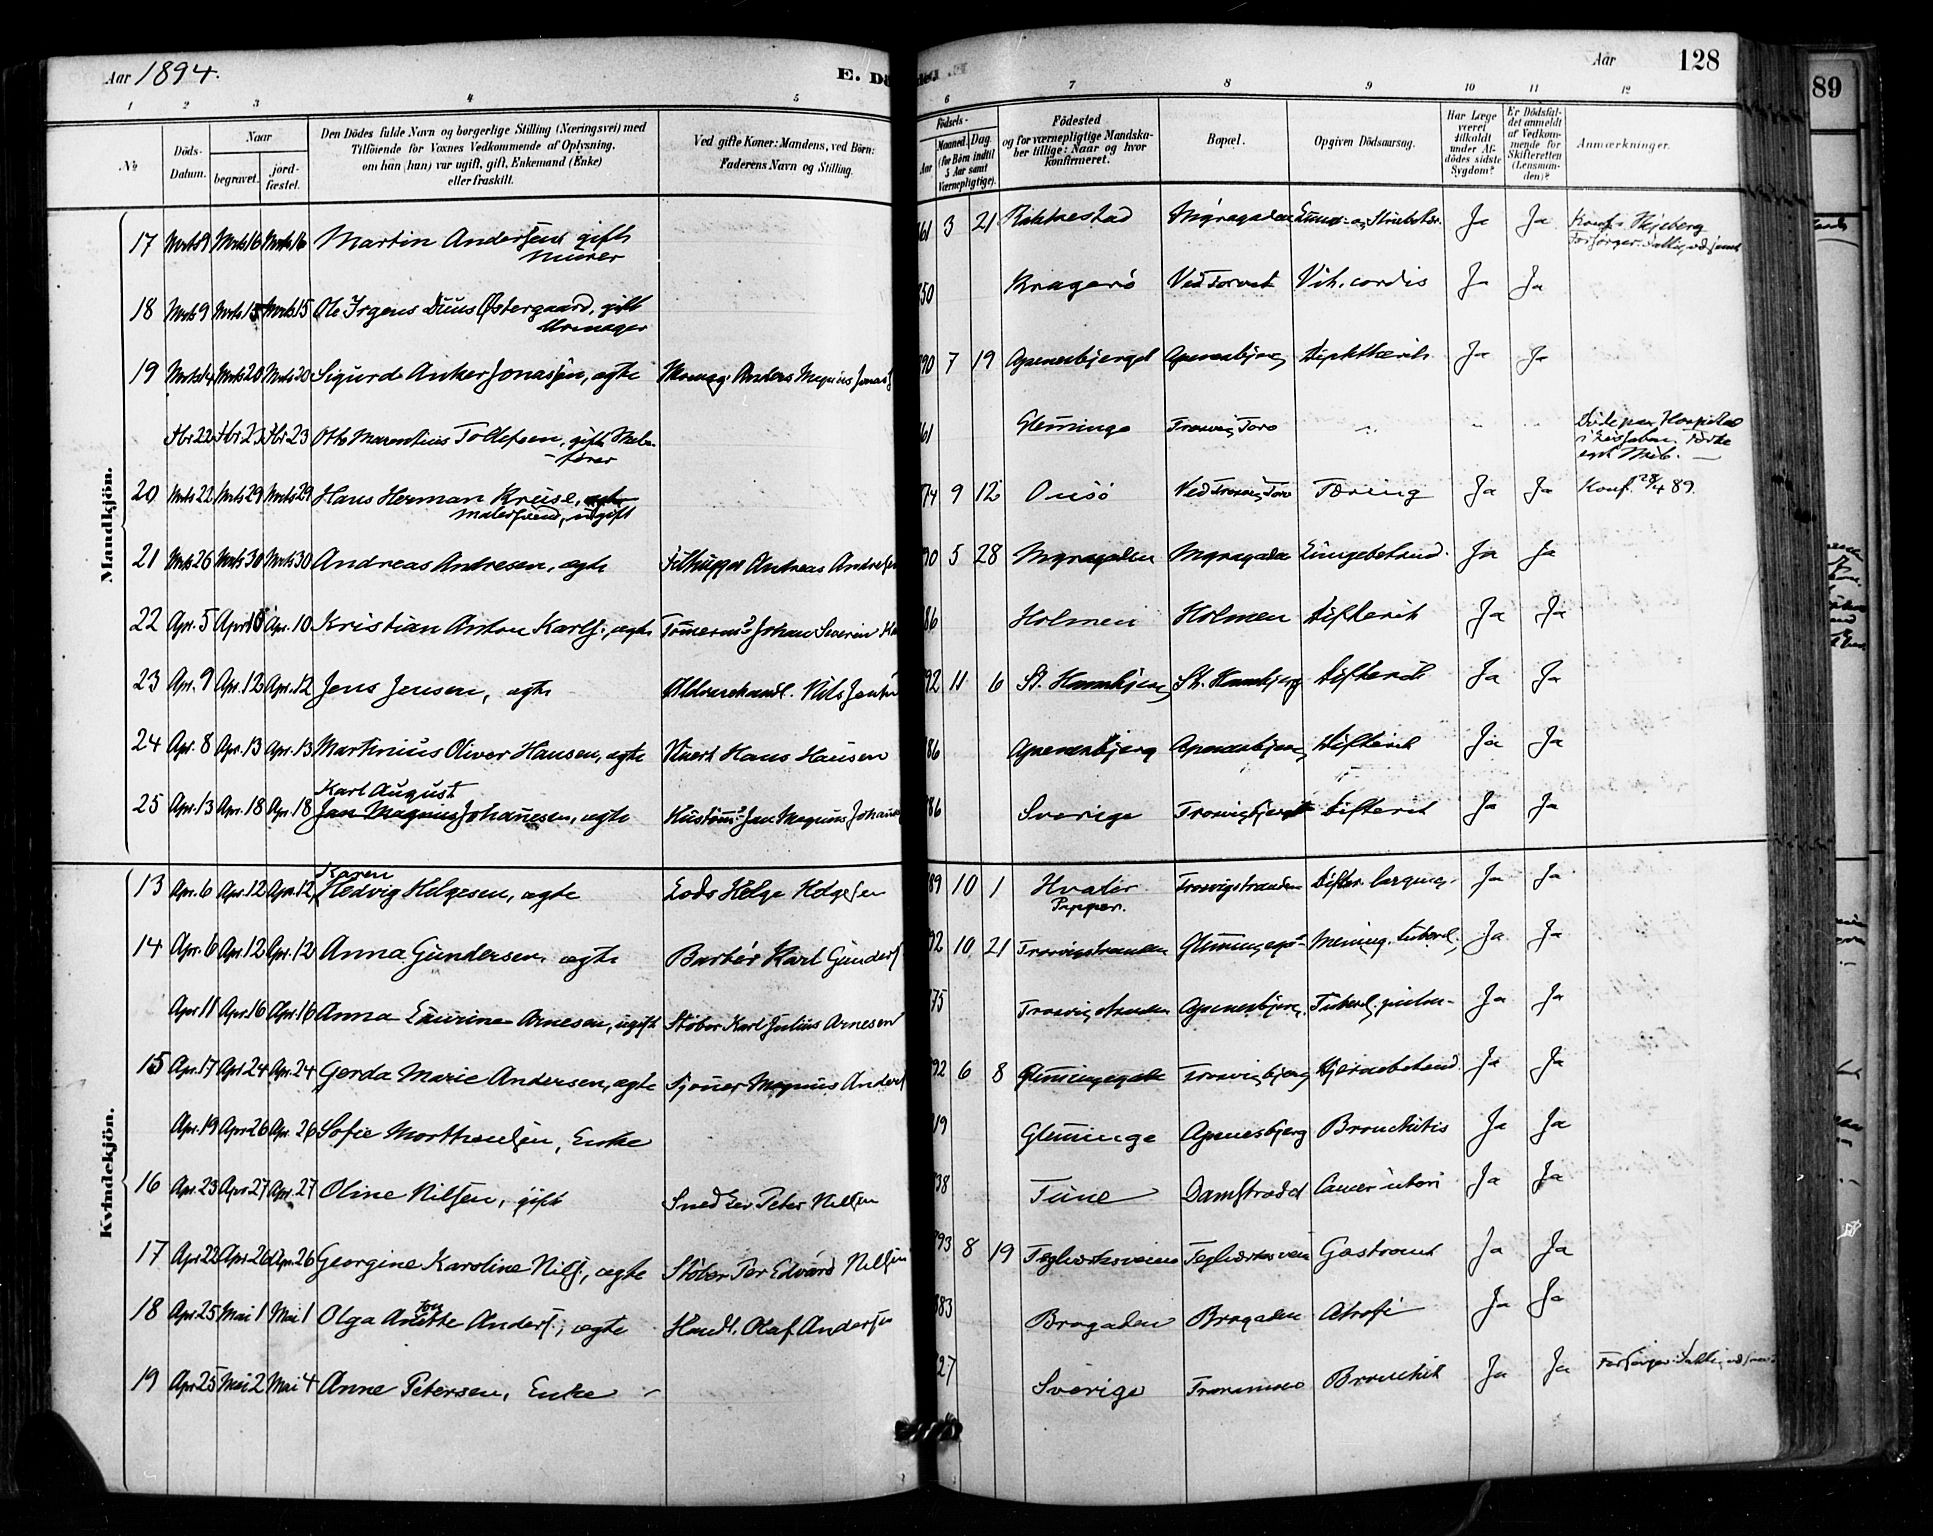 Aar 1894.
E. Dö
Aar 128
89
1 2 3 4 5 6 7 8 9 10 11 12
№
Döds-Datum.
Naar
begravet.
jord-fæstet.
Den Dödes fulde Navn og borgerlige Stilling (Næringsvei) med
Tilföiende for Voxnes Vedkommende af Oplysning,
om hun (han) var ugift, gift, Enkemand (Enke)
eller fraskilt.
Ved gifte Koner: Mandens, ved Börn:
Faderens Navn og Stilling.
Födsels-
Aar
Maaned. Dag.
(for Börn indtil
5 Aar samt
Værnepligtige).
Födested
og for værnepligtige Mandska-
ber tillige: Naar og hvor
konfirmeret.
Bopæl.
Opgiven Dödsaarsag.
Har Læge
været
tilkaldt
under Af-
dödes sidste
Sygdom?
Er Dödsfal-
det anmeldt
af Vedkom-
mende for
Skifteretten
(Lensman-
den)?
Anmærkninger.
Mandkjön.
17 Mrts 9 Mrts 16 Mrts 16 Martin Andersen gift 61 3 21 Rakkestad Ja Ja Konf. i Skjeberg
Murer
18 Mrts 9 Mrts 15 Mrts 15 Ole Irgens Duus Østergaard, gift 50 Kragerö Ved Torvet Vit. cordis Ja Ja
Urmager
19 Mrts 14 Mrts 20 Mrts 20 Sigurd Anker Jonassen, ægte Anders Magnus Jonass 90 7 19 Apenesbjerget Apenesbjerg Diphtherit Ja Ja
Fbr 22 Fbr 23 Fbr 23 Otto Marentius Tollefsen, gift 61 Glemminge Trosvig Torv
20 Mrts 22 Mrts 29 Mrts 29 Hans Herman Kruse, ægte 74 9 12 Onsö Ved Trosvig Torv Tæring Ja Ja Konf. 28/4 89.
malersvend, ugift
21 Mrts 26 Mrts 30 Mrts 30 Andreas Andresen, ægte Filhugger Andreas Andresen 90 5 28 Nygagaden Nygagaden Lungebetænd. Ja Ja
22 Apr. 5 Apr 10 Apr. 10 Kristian Anton Karls, ægte Tömerm. Johan Severin 86 Holmen Holmen Difterit Ja Ja
23 Apr. 9 Apr. 12 Apr. 12 Jens Jensen, ægte Nils Jensen 92 11 6 St. Hansbjerg St. Hansbjerg Difterit Ja Ja
24 Apr. 8 Apr. 13 Apr. 13 Martinius Oliver Hansen, ægte Hans Hansen 86 Apenesbjerg Apenesbjerg Difterit Ja Ja
Karl August
25 Apr. 13 Apr. 18 Apr. 18 Jan Magnus Johansen, ægte Jan Magnus Johansen 86 Sverige Trosvigbjerget Difterit Ja Ja
Kvindekjön.
Karen
13 Apr. 6 Apr. 12 Apr. 12 Hedvig Helgesen, ægte Lods Helge Helgesen 89 10 1 Hvaler Trosvigstranden Difter. laryng. Ja Ja
Papper.
14 Apr. 6 Apr. 12 Apr. 12 Anna Gundersen, ægte Barbér Karl Gunders 92 10 21 Trosvigstranden Glemminggd Mening. tubercl. Ja Ja
Apr 11 Apr. 16 Apr 16 Anna Laurine Arnesen, ugift Støber Karl Julius Arnesen 75 Trosvigstranden Apenesbjerg Tubercl. pulm. Ja Ja
15 Apr. 17 Apr 24 Apr. 24 Gerda Marie Andersen, ægte Magnus Anders 92 6 8 Glemmingegade Trosvigbjerg Hjernebetænd. Ja Ja
Apr. 19 Apr 26 Apr. 26 Sofie Morthensen, Enke 19 Glemminge Apenesbjerg Bronchitis Ja Ja
16 Apr. 23 Apr 27 Apr. 27 Oline Nilsen, gift Snedker Peter Nilsen 38 Tune Damstrædd Cancer uteri Ja Ja
17 Apr 23 Apr 26 Apr. 26 Georgine Karoline Nils, ægte Støber Per Edvard Nilsen 93 8 19 Teglværksveien Teglværksvei Gastroent Ja Ja
18 Apr 25 Mai 1 Mai 1 Olga Antonette Anders, ægte Handl. Olaf Andersen 83 Brogaden Brogaden Atrofi Ja Ja
19 Apr 25 Mai 2 Mai 4 Anne Petersen, Enke 27 Sverige Bronchit Ja Ja